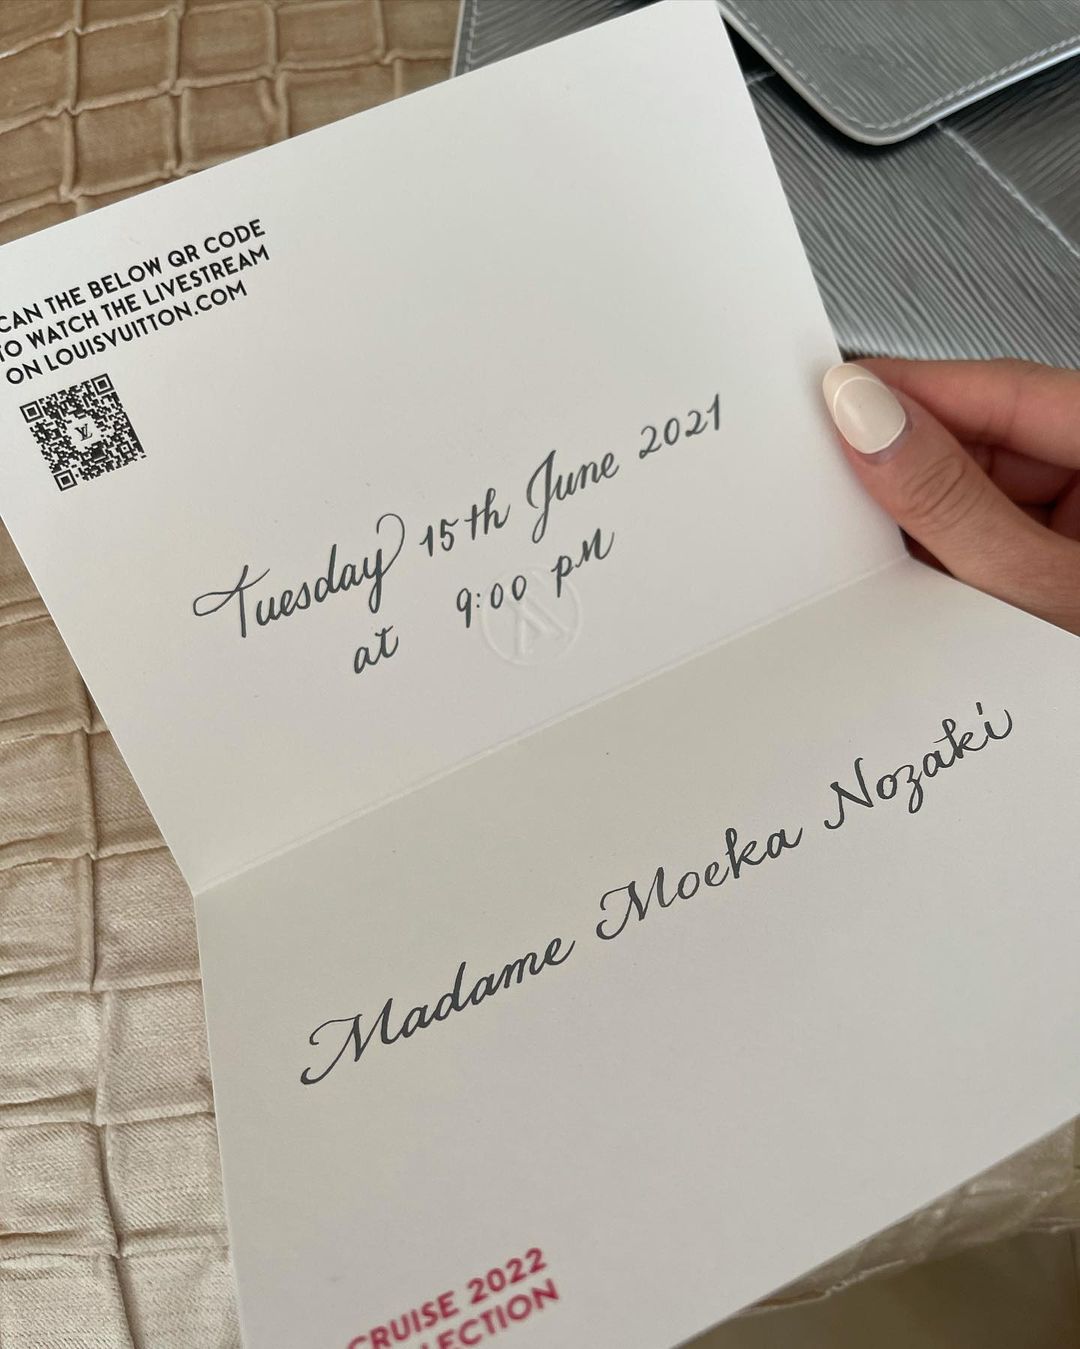 CAN THE BELOW QR CODE
TO WATCH THE LIVESTREAM
ON LOUISVUITTON.COM
LV
Tuesday 15th June 2021
at 9:00 PM
Madame Moeka Nozaki
CRUISE 2022
LECTION